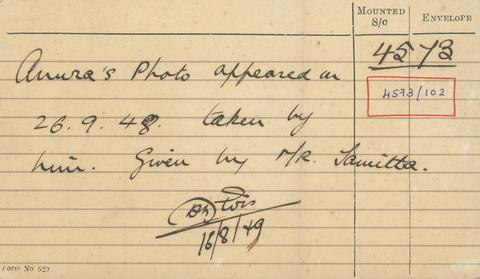 MOUNTED S/C
ENVELOPE
4573
4573/102
Anura's Photo appeared on
26.9.48. taken by
him. Given by Mr. Samitta.
16/8/49
FORM NO 529